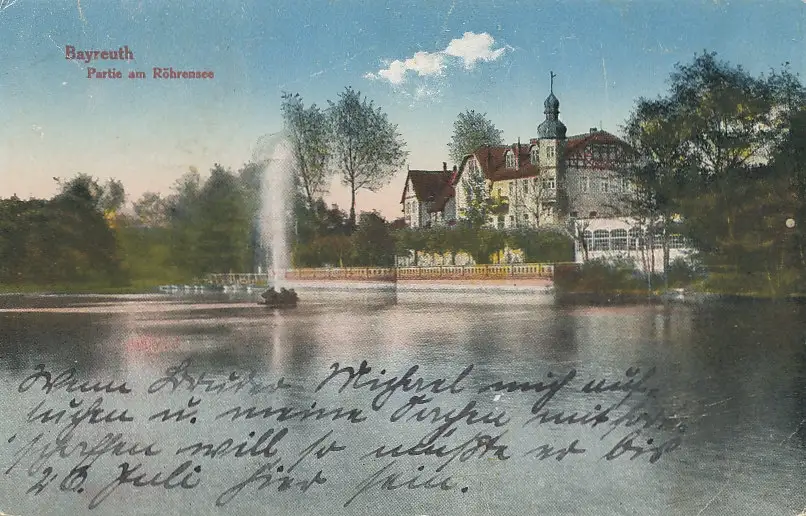 Bayreuth
Partie am Röhrensee
Wenn Bruder Michael mich auf-
suchen u. meine Sachen mit
will so müßte er bis
26. Juli hier sein.